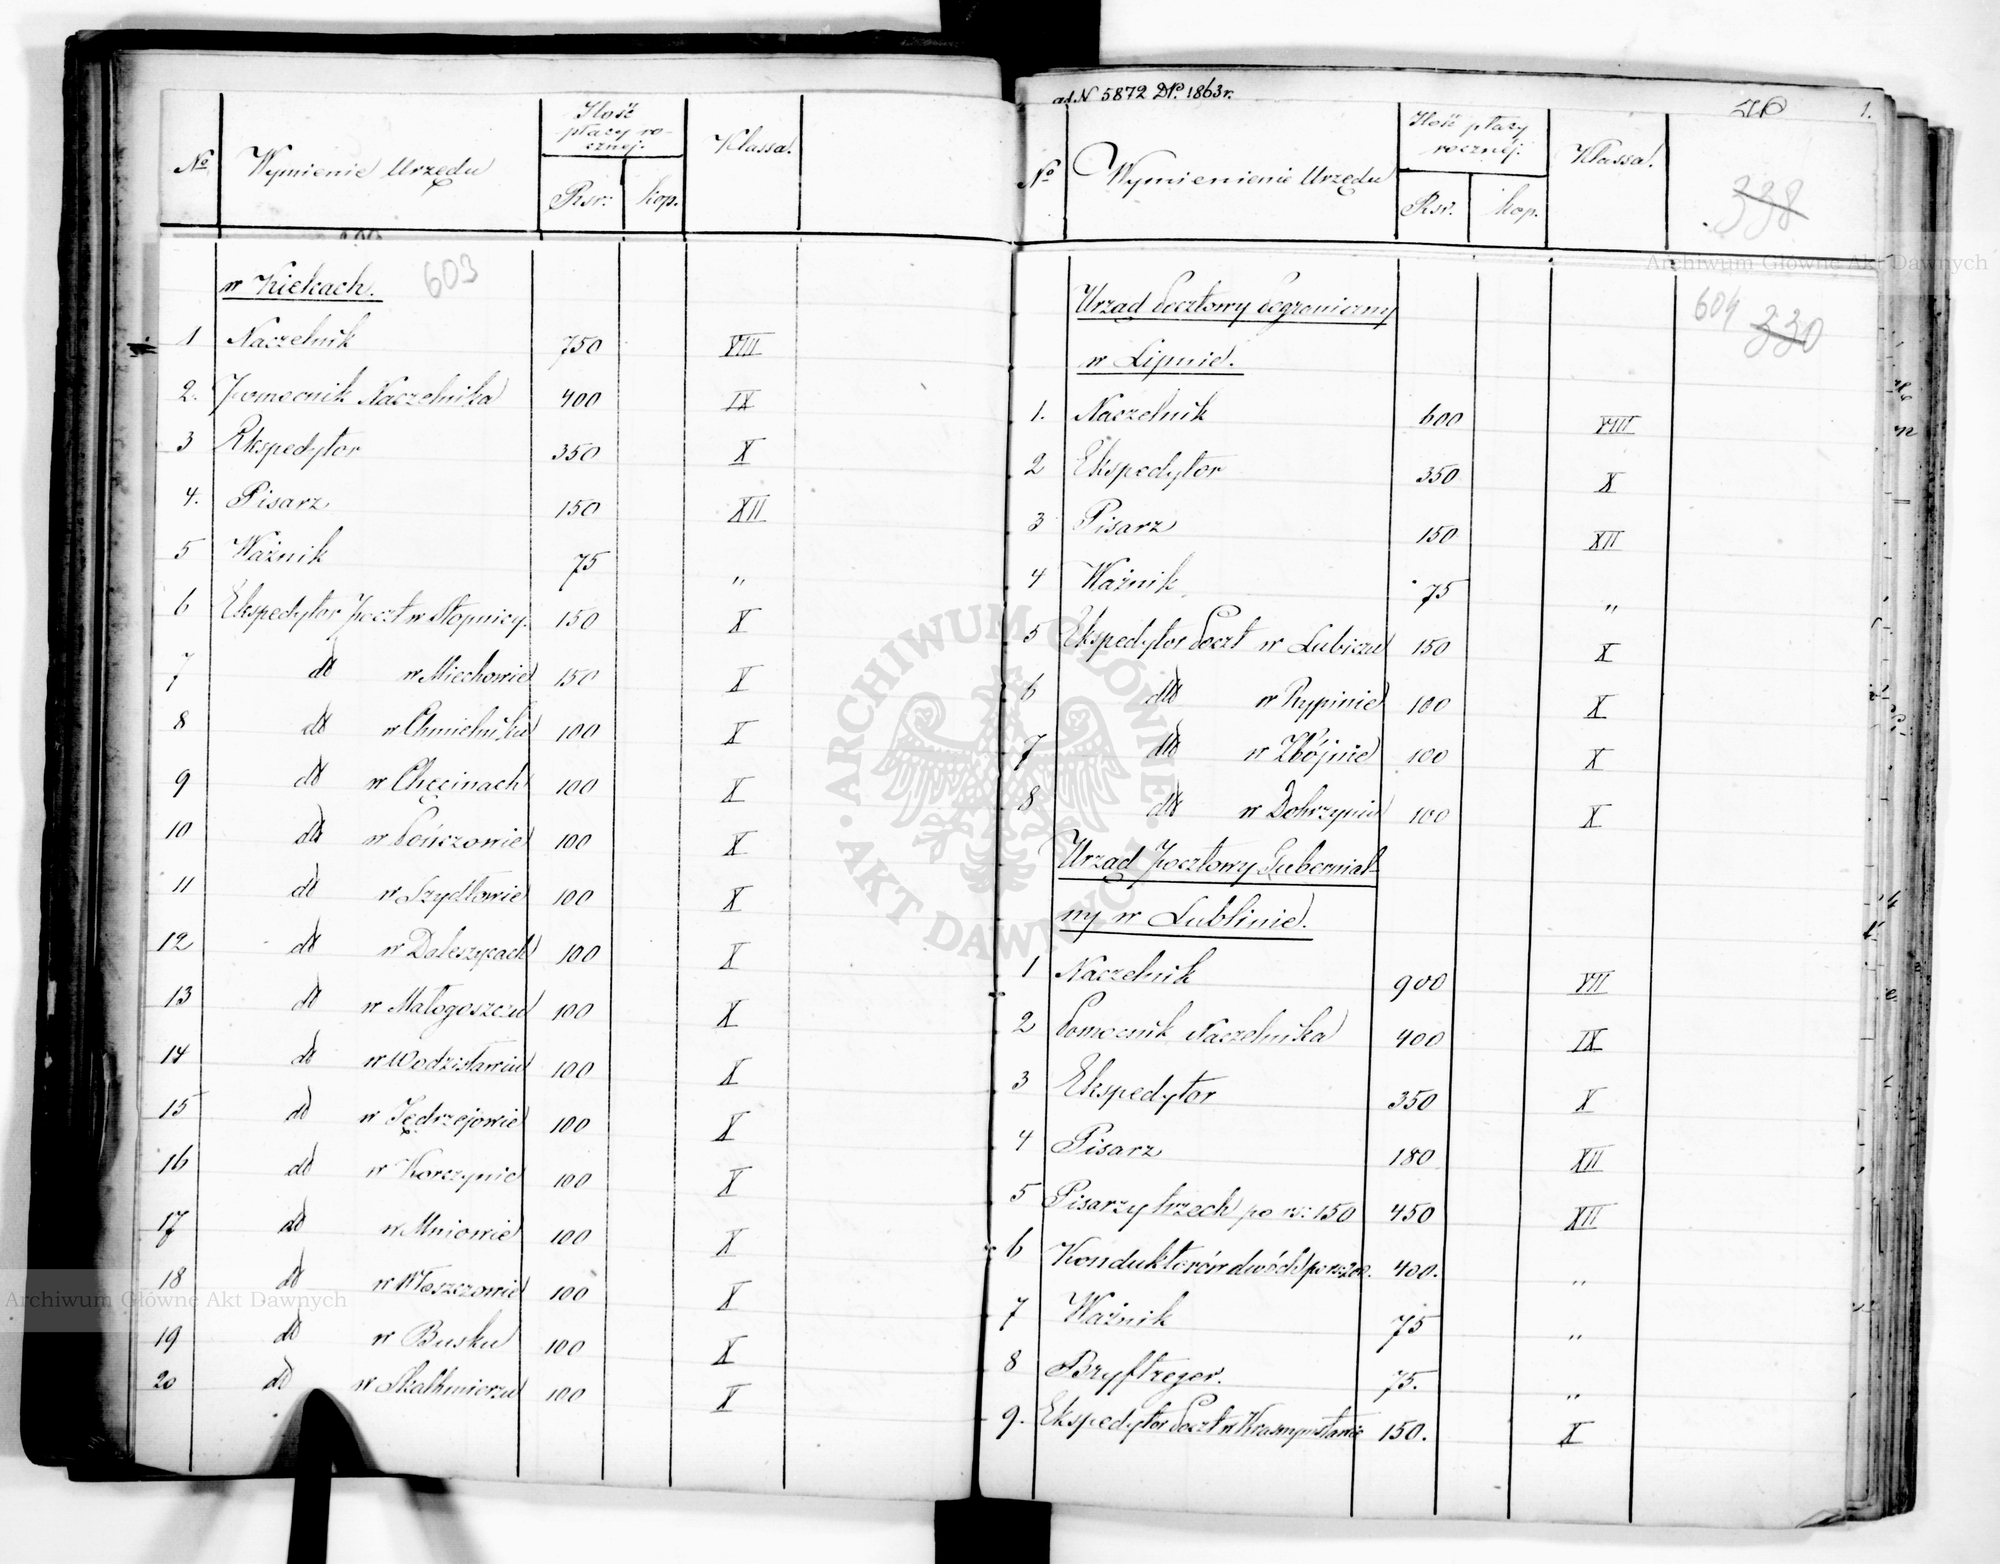 № Wymienie Urzędu Ilość płacy rocznej. Klassa.
Rsr. kop.
603
w Kielcach.
1 Naczelnik 750 VIII
2. Pomocnik Naczelnika 400 IX
3 Ekspedytor 350 X
4. Pisarz 150 XII
5 Ważnik 75 "
6 Ekspedytor Poczt w Stopnicy. 150 X
7 dt w Miechowie 150 X
8 dt w Chmielniku 100 X
9 dt w Chęcinach 100 X
10 dt w Pończowie 100 X
11 dt w Szydłowie 100 X
12 dt w Daleszycach 100 X
13 dt w Małogoszczu 100 X
14 dt w Wodzisławiu 100 X
15 dt w Jędrzejowie 100 X
16 dt w Korczynie 100 X
17 dt w Mniowie 100 X
18 dt w Włoszczowie 100 X
19 dt w Busku 100 X
20 dt w Skalbmierzu 100 X
ad N 5872 DP. 1863 r.
1.
№ Wymienienie Urzędu Ilość płacy rocznéj. Klassa.
Rsr. kop.
338
604 330
Urząd Pocztowy Pograniczny
w Lipnie.
1. Naczelnik 600 VIII
2 Ekspedytor 350 X
3 Pisarz 150 XII
4 Ważnik 75 "
5 Ekspedytor Poczt w Lubiczu 150 X
6 dtt w Rypinie 100 X
7 dtt w Zbójnie 100 X
8 dtt w Dobrzyniu 100 X
Urząd Pocztowy Gubernial-
ny w Lublinie.
1 Naczelnik 900 VII
2 Pomocnik Naczelnika 400 IX
3 Ekspedytor 350 X
4 Pisarz 180 XII
5 Pisarzy trzech po rs: 150 450 XII
6 Konduktorów dwóch po rs 200. 400. "
7 Ważnik 75 "
8 Bryftreger. 75. "
9. Ekspedytor Poczt w Krasnymstawie 150. X
ARCHIWUM GŁÓWNE AKT DAWNYCH
Archiwum Główne Akt Dawnych
Archiwum Główne Akt Dawnych